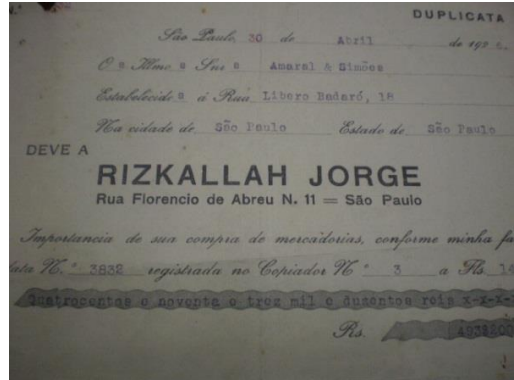 DUPLICATA
São Paulo, 30 de Abril de 192
O s Illmo. s Snr s Amaral & Simões
Estabelecido s á Rua Libero Badaró, 18
Na cidade de São Paulo Estado de São Paulo
DEVE A
RIZKALLAH JORGE
Rua Florencio de Abreu N. 11 = São Paulo
Importancia de sua compra de mercadorias, conforme minha fa
N.º 3832 registrada no Copiador N.º 3 a Fls. 14
Quatrocentos e noventa e trez mil e duzentos reis x-x-x-
Rs. 493$200